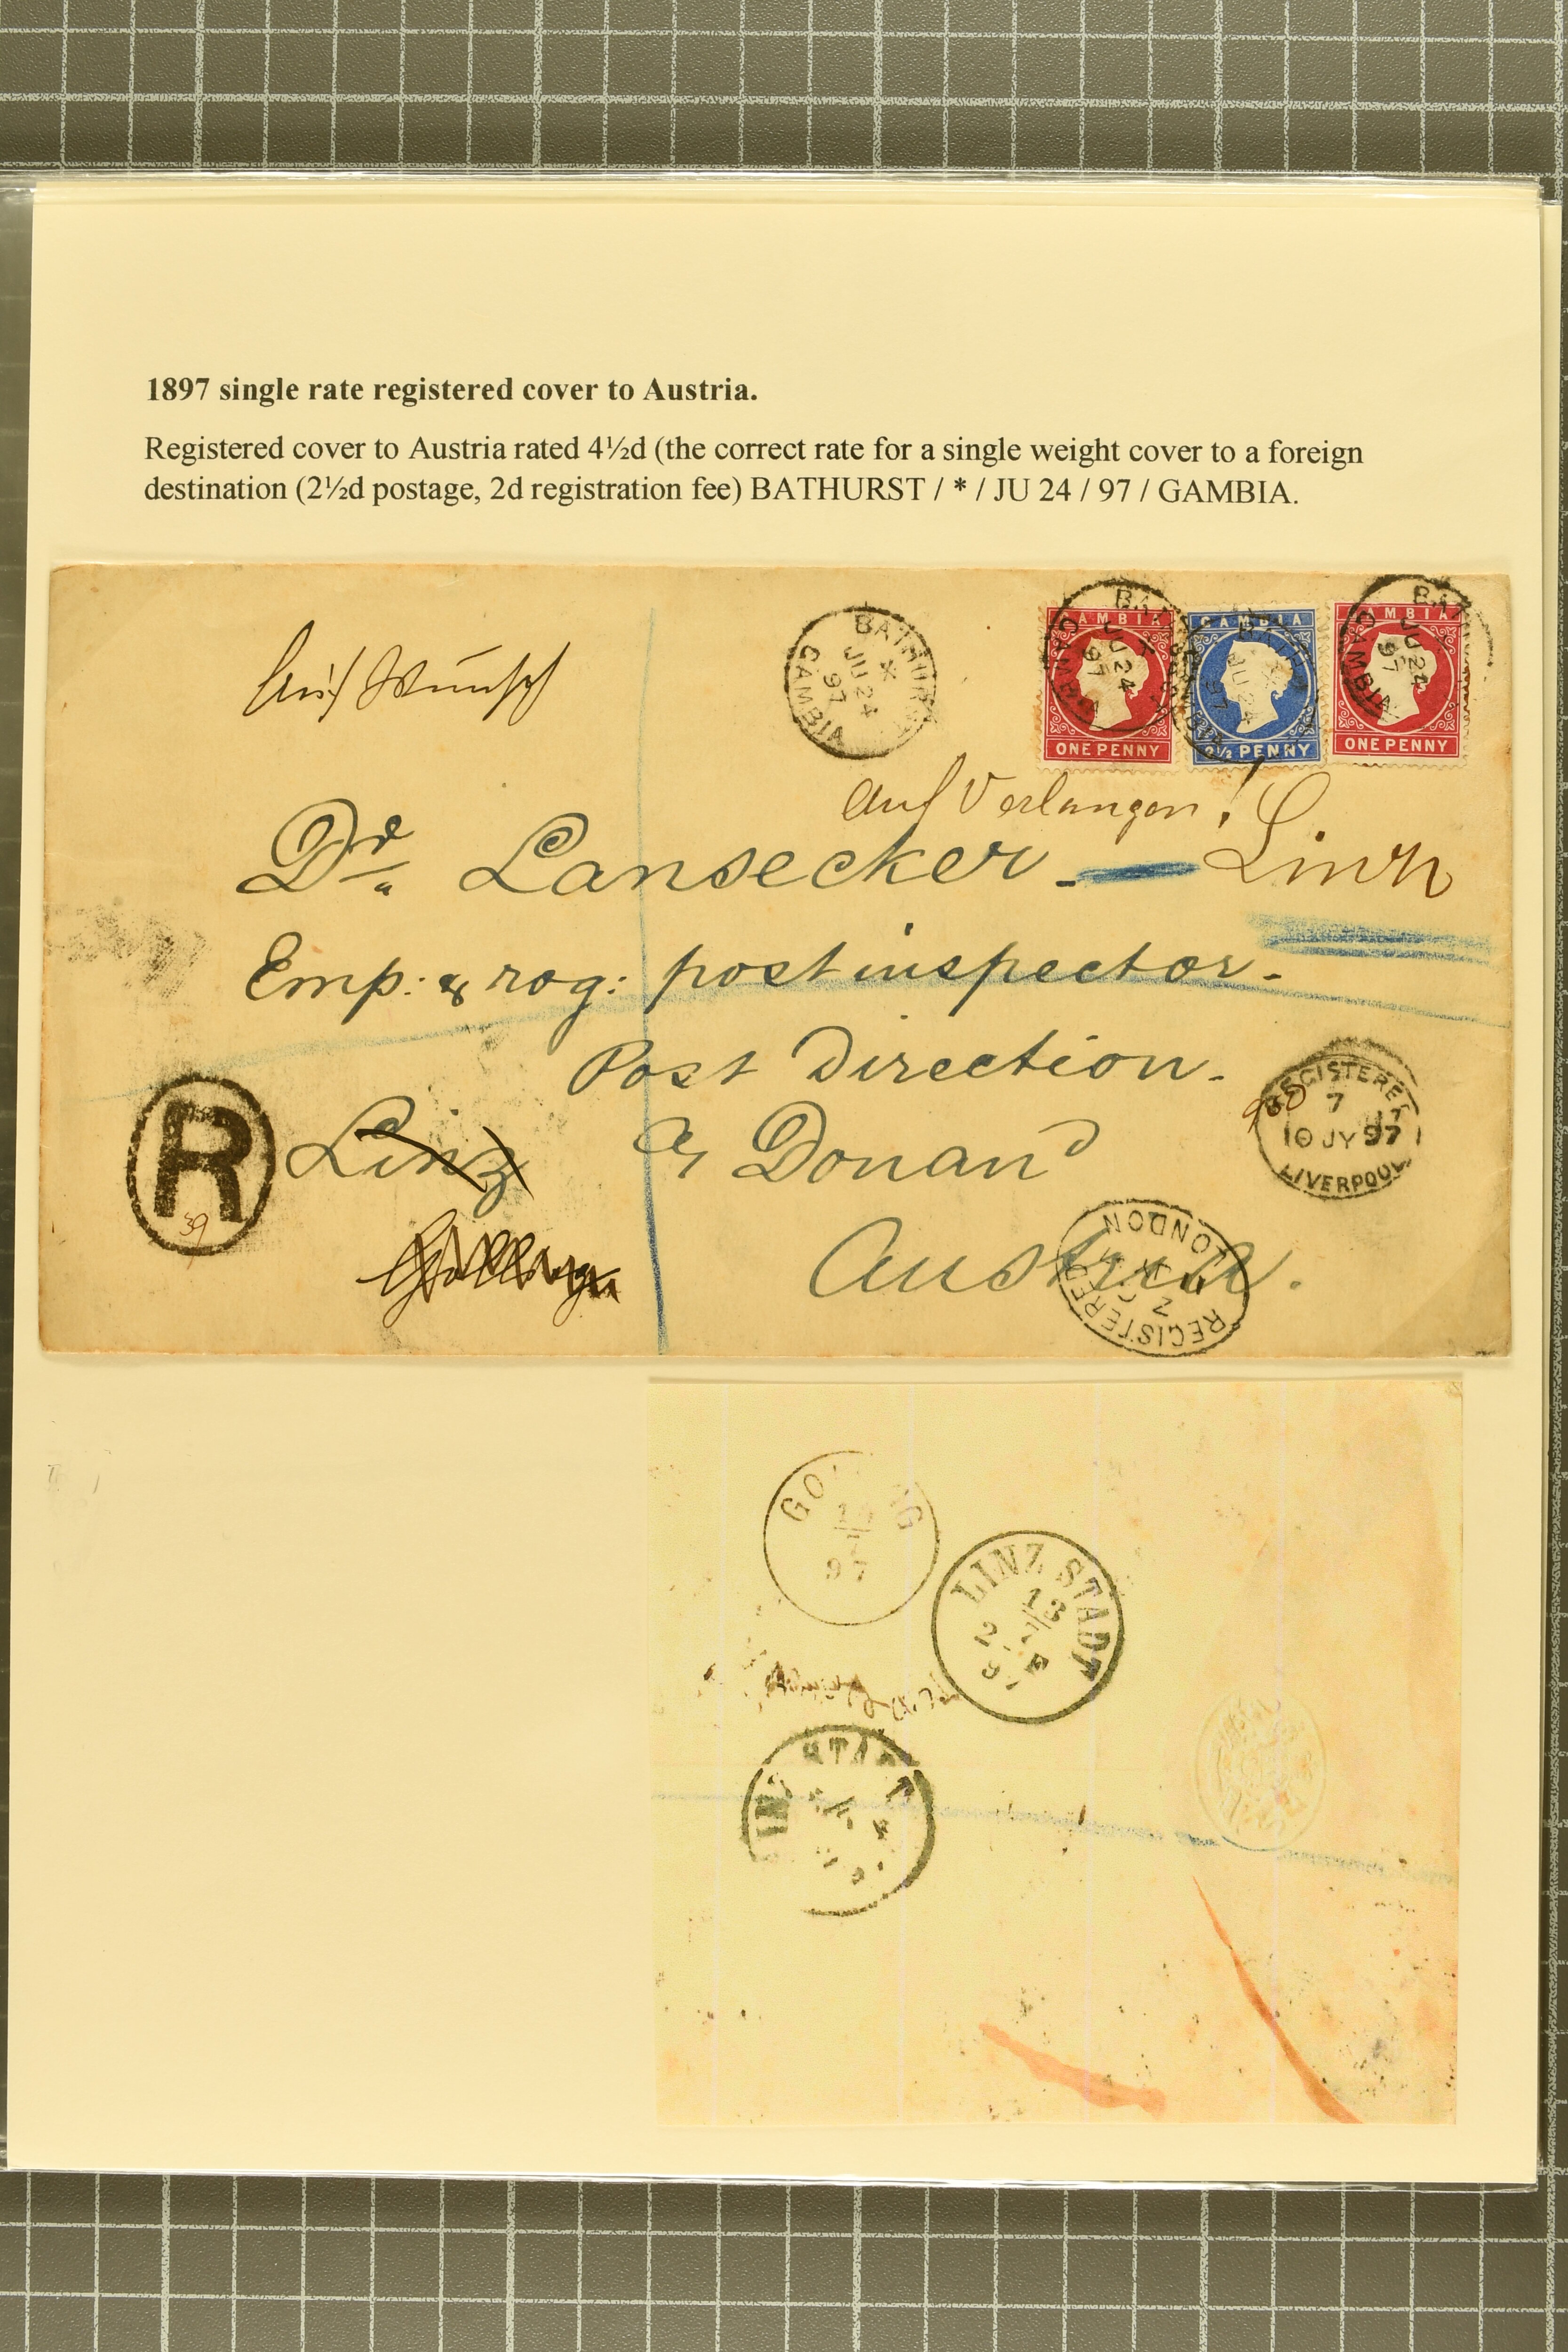 1897 single rate registered cover to Austria.
Registered cover to Austria rated 4½d (the correct rate for a single weight cover to a foreign
destination (2½d postage, 2d registration fee) BATHURST / * / JU 24 / 97 / GAMBIA.
Auf Wunsch
BATHURST
JU 24
97
GAMBIA
GAMBIA
ONE PENNY
GAMBIA
2½ PENNY
GAMBIA
ONE PENNY
BAT
JU 24
97
GAMBIA
JU 24
97
BAT
JU 24
97
GAMBIA
auf Verlangen!
Dr. Lansecker -
Emp: & rog: post inspector -
Post Direction.
Linz a Donau
Austria.
R
39
REGISTERED
7
10 JY 97
LIVERPOOL
REGISTERED
LONDON
GO NG
97
LINZ STADT
13
STADT